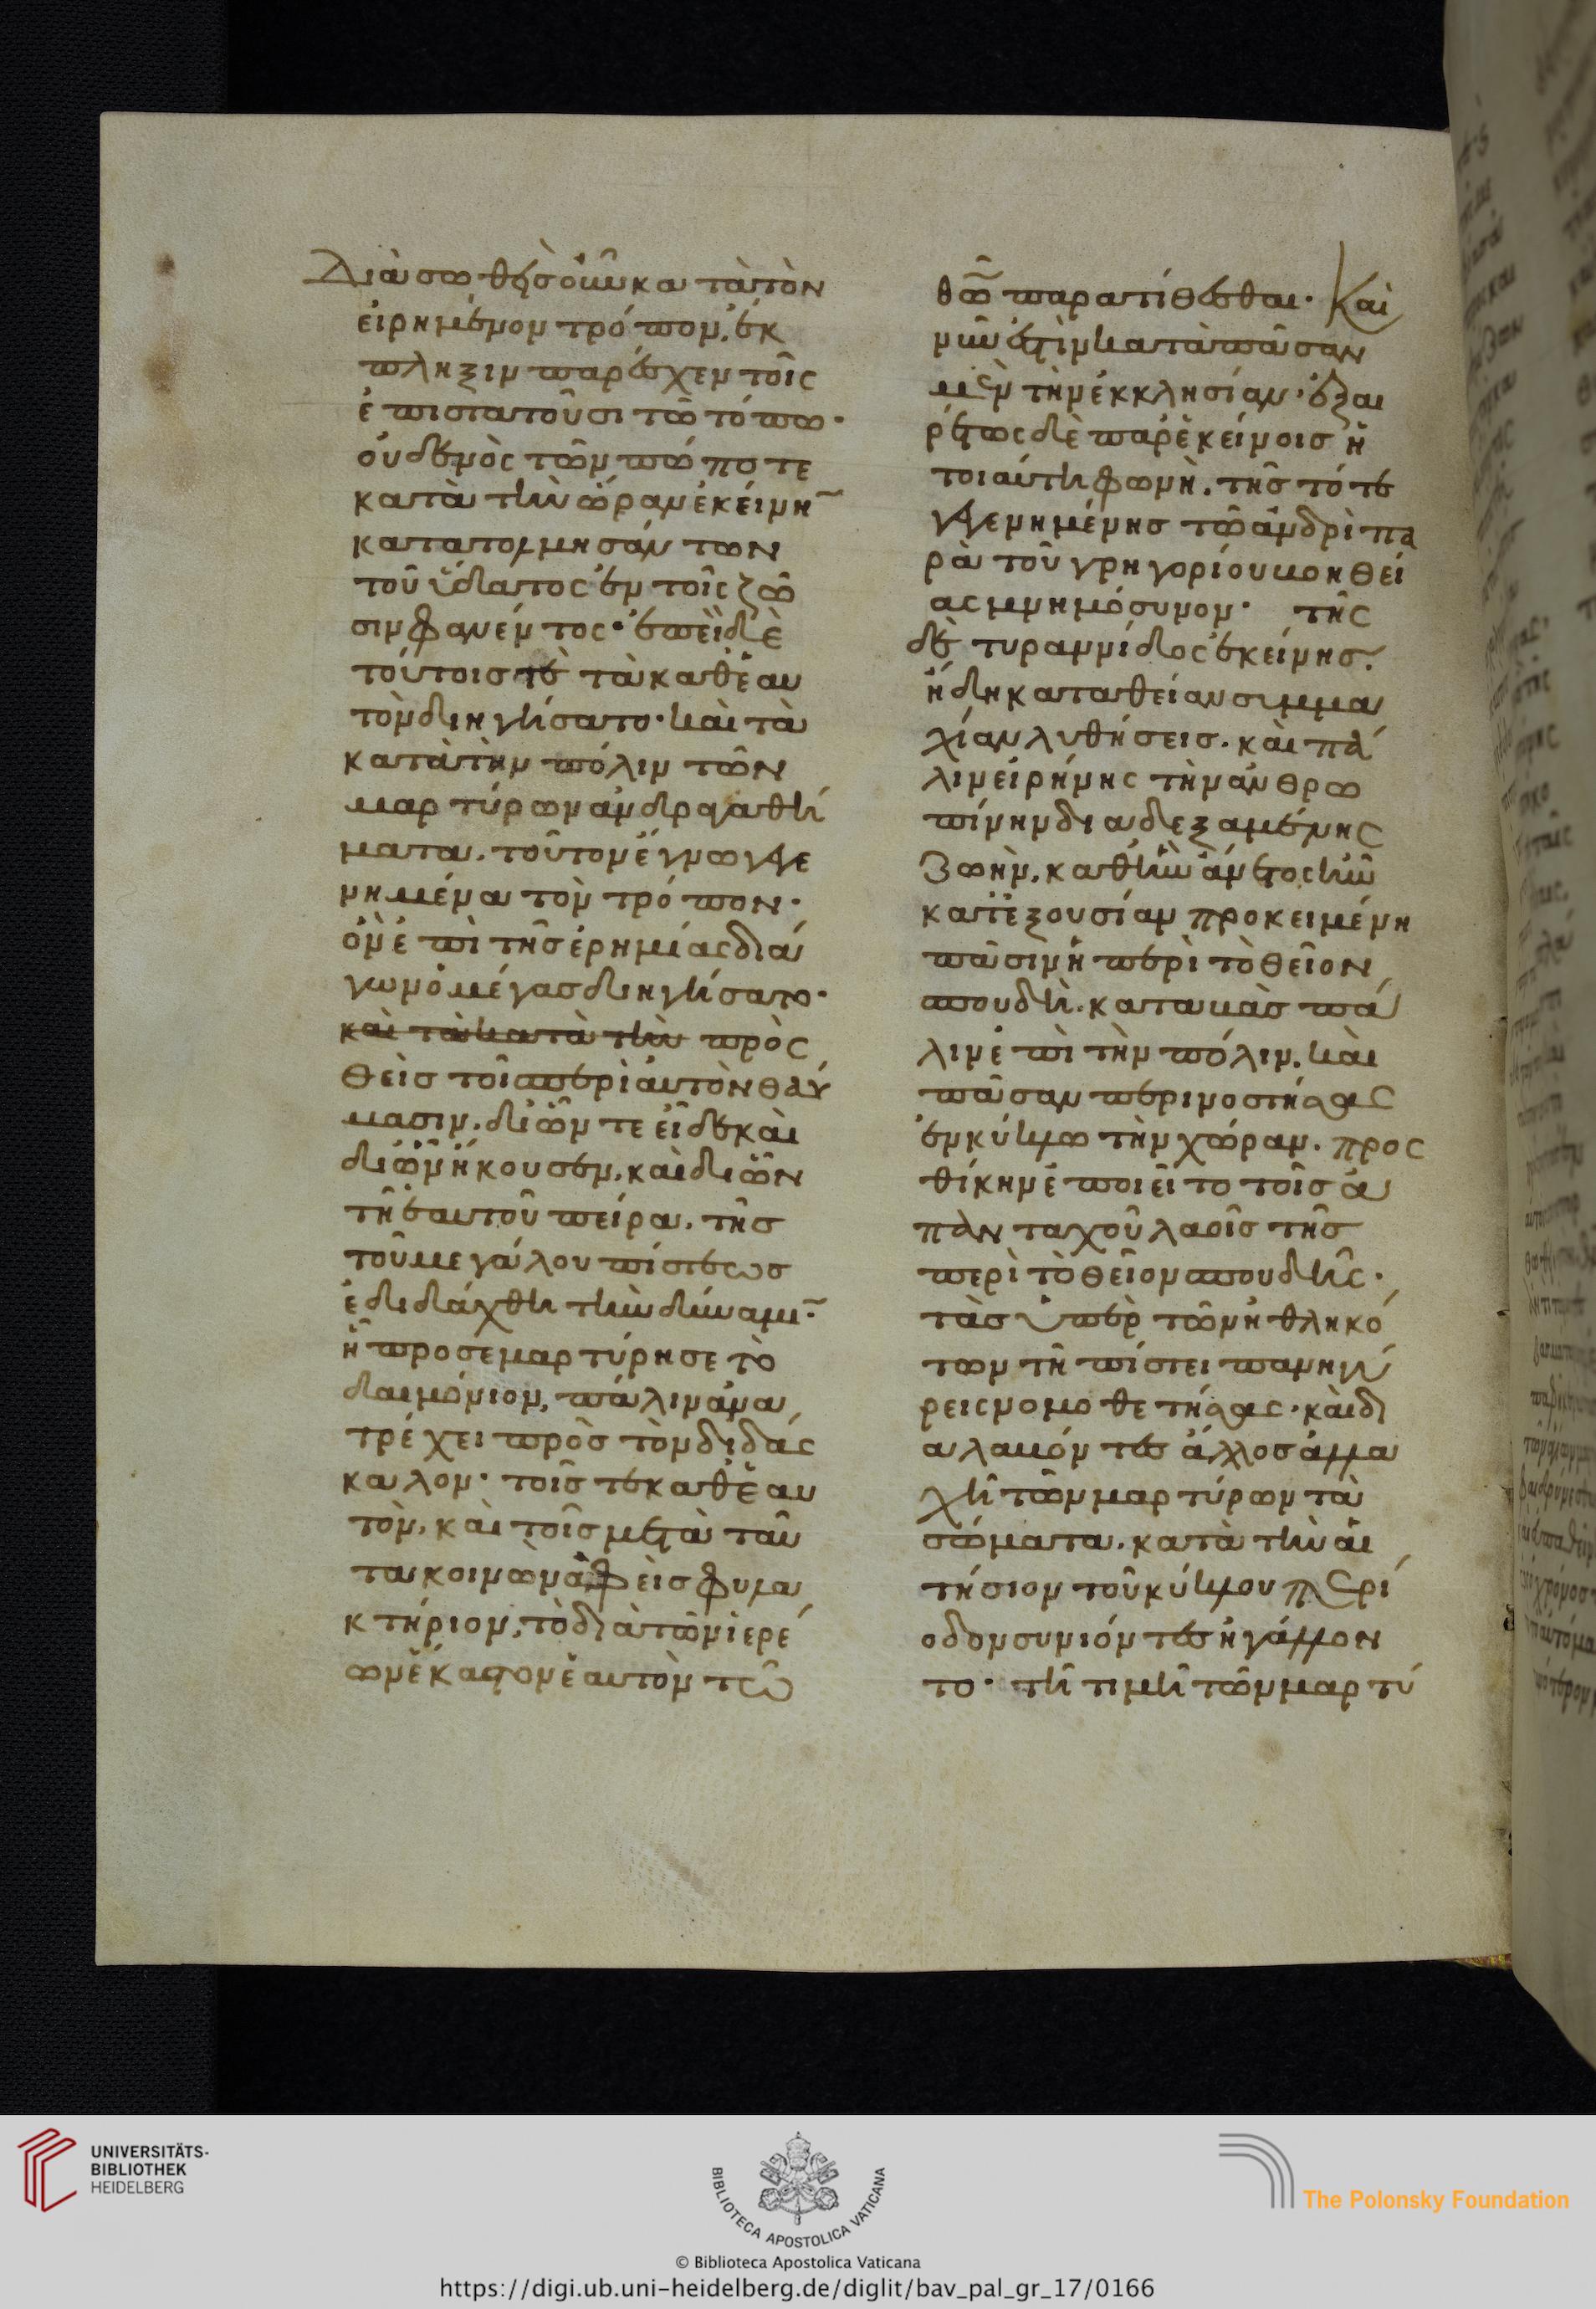 Διασωθεὶς οὖν κατὰ τὸν
εἰρημένον τρόπον, ἔκ
πληξιν παρέσχεν τοῖς
ἐπιστατοῦσι τῶ τόπω·
οὐδενὸς τῶν πώποτε
κατὰ τὴν ὥραν ἐκείνη
κατατολμησάντων
τοῦ ὕδατος ἐν τοῖς ζῶ
σιν φανέντος· ἐπεὶ δὲ
τούτοις τε τὰ καθ' ἑαυ
τὸν διηγήσατο· καὶ τὰ
κατὰ τὴν πόλιν τῶν
μαρτύρων ἀνδραγαθή
ματα. τοῦτον ἔγνω γε
νημένα τὸν τρόπον·
ὃν ἐπὶ τῆς ἐρημίας διά
γων ὁ μέγας διηγήσατο·
καὶ τὰ κατὰ τὴν πρὸς
θεὶς τοῖς περὶ αὐτὸν θαύ
μασιν. δι' ὧν τε εἶδε καὶ
δι' ὧν ἤκουσεν, καὶ δι' ὧν
τῆ ἑαυτοῦ πείρα. τῆς
τοῦ μεγάλου πίστεως
ἐδιδάχθη τὴν δύναμι
ἣ προσεμαρτύρησε τὸ
δαιμόνιον, πάλιν ἀνα
τρέχει πρὸς τὸν διδάς
καλον· τοῖς τε καθ' ἑαυ
τὸν, καὶ τοῖς μετὰ ταῦ
τα κοινὸν ἀφεὶς φυλα
κτήριον, τὸ διὰ τῶν ἱερέ
ων ἕκαστον ἑαυτὸν τῶ
θῶ παρατίθεσθαι· Καὶ
νῦν ἐστὶν κατὰ πᾶσαν
μὲν τὴν ἐκκλησίαν· ἐξαι
ρέτως δὲ παρ' ἐκείνοις ἡ
τοιαύτη φωνὴ. τῆς τότε
γενημένης τῶ ἀνδρὶ πα
ρὰ τοῦ γρηγορίου βοηθεί
ας μνημόσυνον· τῆς
δὲ τυραννίδος ἐκείνης.
ἤδη κατὰ θείαν συμμα
χίαν λυθήσεις. καὶ πά
λιν εἰρήνης τὴν ἀνθρω
πίνην διαδεξαμένης
ζωὴν, καθ' ἣν ἄνετος ἦν
κατ' ἐξουσίαν προκειμένη
πᾶσιν ἡ περὶ τὸ θεῖον
σπουδὴ. καταβὰς πά
λιν ἐπὶ τὴν πόλιν. καὶ
πᾶσαν περινοστήσας
ἐν κύκλω τὴν χώραν. προς
θήκην ἐποιεῖτο τοῖς ἁ
πανταχοῦ λαοῖς τῆς
περὶ τὸ θεῖον σπουδῆς·
τὰς ὑπὲρ τῶν ἠθληκό
των τῆ πίστει πανηγύ
ρεις νομοθετήσας. καὶ δι
αλαβόντες ἄλλος ἀλλα
χῆ τῶν μαρτύρων τὰ
σώματα. κατὰ τὴν ἐν
τήσιον τοῦ κύκλου περί
οδον συνιόντες ἠγάλλον
το· τῆ τιμῆ τῶν μαρτύ
UNIVERSITÄTS-
BIBLIOTHEK
HEIDELBERG
BIBLIOTECA APOSTOLICA VATICANA
The Polonsky Foundation
© Biblioteca Apostolica Vaticana
https://digi.ub.uni-heidelberg.de/diglit/bav_pal_gr_17/0166